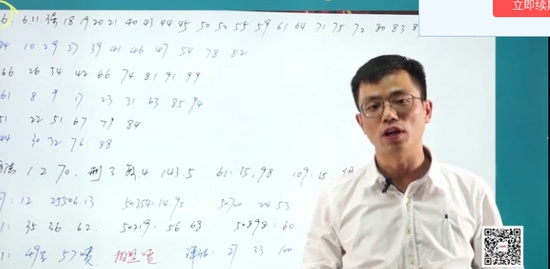 立即续
6: 611.保 18 19 20 21 40 43 44 45 50 52 55 59 61 64 71 75 72 80 83 8
10 29 37 39 41 46 47 54 78 82
66 26 34 42 66 74 81 91 99
61 8 9 17 23 31 63 85 94
51 22 51 67 79 84
44 30 32 76 88
法 1 2 70. 刑 3 4 143.5 61:15.98 109:25
12 25506.13 50354:14.95 50720 24 53
1: 35 36 62. 50219: 56 68 50898:60
1: 49 57 27 33 100